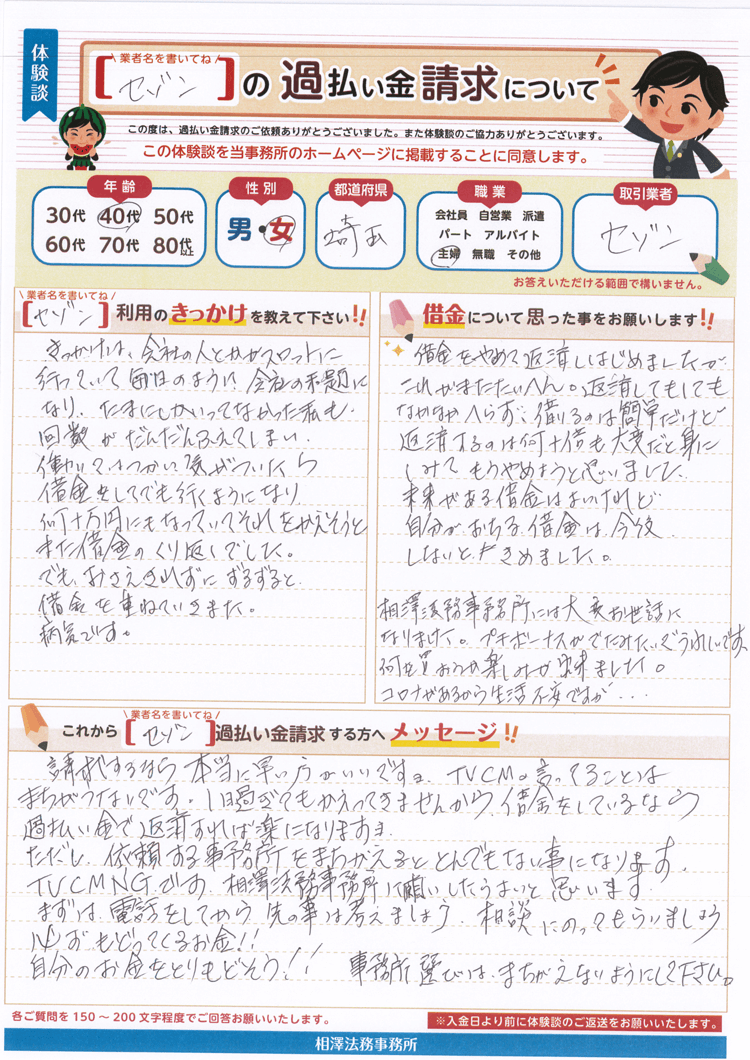 体験談
業者名を書いてね
[セゾン]の過払い金請求について
この度は、過払い金請求のご依頼ありがとうございました。また体験談のご協力ありがとうございます。
この体験談を当事務所のホームページに掲載することに同意します。
年齢
30代 40代 50代
60代 70代 80代以上
性別
男・女
都道府県
埼玉
職業
会社員 自営業 派遣
パート アルバイト
主婦 無職 その他
取引業者
セゾン
お答えいただける範囲で構いません。
業者名を書いてね
[セゾン]利用のきっかけを教えて下さい!!
きっかけは、会社の人とかがスロットに
行っていて毎日のように会社の話題に
なり、たまにしかいってなかった私も、
回数がだんだんふえてしまい、
働いてはつかい気がついたら
借金をしてでも行くようになり
何十万円にもなっていてそれをかえそうと
また借金のくり返しでした。
でも、おさえきれずにずるずると、
借金を重ねていきました。
病気です。
借金について思った事をお願いします!!
借金をやめて返済しはじめましたが
これがまたたいへん。返済してもしても
なかなかへらず、借りるのは簡単だけど
返済するのは何十倍も大変だと身に
しみてもうやめようと思いました。
未来がある借金はよいけれど
自分がおちる借金は今後
しないときめました。
相澤法務事務所には大変お世話に
なりました。プチボーナスがでたみたいでうれしいです。
何を買おうか楽しみが出来ました。
コロナがあるから生活不安ですが...
業者名を書いてね
これから[セゾン]過払い金請求する方へメッセージ!!
請求するなら本当に早い方がいいですよ。TVCMの言ってることは
まちがってないです。1日過ぎてもかえってきませんから、借金をしているなら
過払い金で返済すれば楽になりますよ
ただし、依頼する事務所をまちがえるととんでもない事になります。
TVCMNGです。相澤法務事務所に願いしたらよいと思います。
まずは、電話をしてから先の事は考えましょう。相談にのってもらいましょう
必ずもどってくるお金!!
自分のお金をとりもどそう!! 事務所選びは、まちがえないようにして下さい。
各ご質問を150～200文字程度でご回答お願いいたします。
※入金日より前に体験談のご返送をお願いいたします。
相澤法務事務所